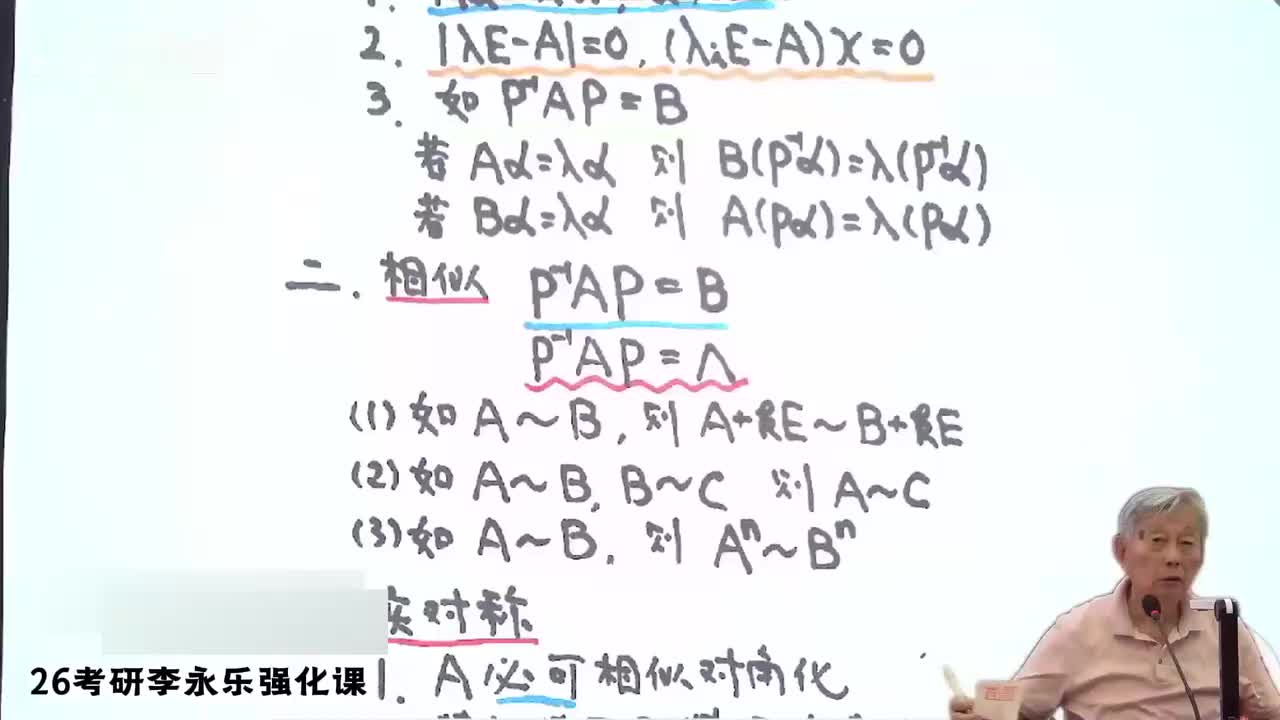 2. |λE-A|=0, (λᵢE-A)x=0
3. 如 P⁻¹AP=B
若 Aα=λα 则 B(P⁻¹α)=λ(P⁻¹α)
若 Bα=λα 则 A(Pα)=λ(Pα)
二. 相似 P⁻¹AP=B
P⁻¹AP=Λ
(1) 如 A~B, 则 A+kE~B+kE
(2) 如 A~B, B~C 则 A~C
(3) 如 A~B, 则 Aⁿ~Bⁿ
实对称
1. A 必可相似对角化
26考研李永乐强化课